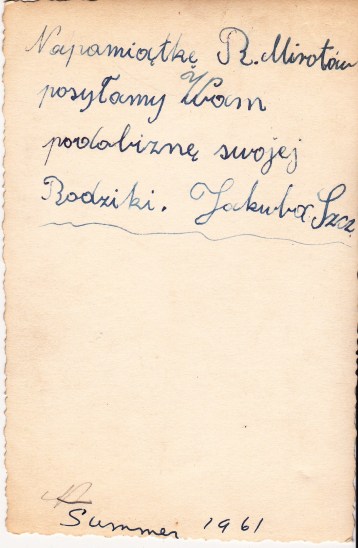 Napamiątkę R. Mirotów
posyłamy Wam
podobiznę swojej
Rodziki. Jakuba Szcz.
Summer 1961